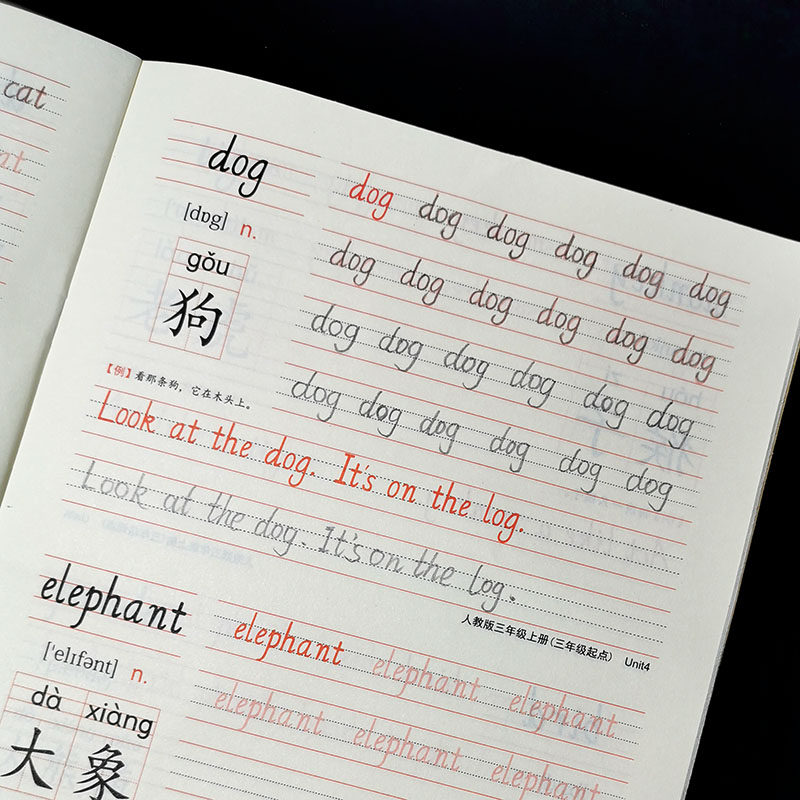 cat
dog
dog dog dog dog dog dog
[dɒg] n.
gǒu
狗
dog dog dog dog dog dog
dog dog dog dog dog dog
【例】看那条狗，它在木头上。
dog dog dog dog dog dog
Look at the dog. It's on the log.
Look at the dog. It's on the log.
人教版三年级上册（三年级起点） Unit4
elephant
elephant elephant elephant
['elɪfənt] n.
dà xiàng
大象
elephant elephant elephant